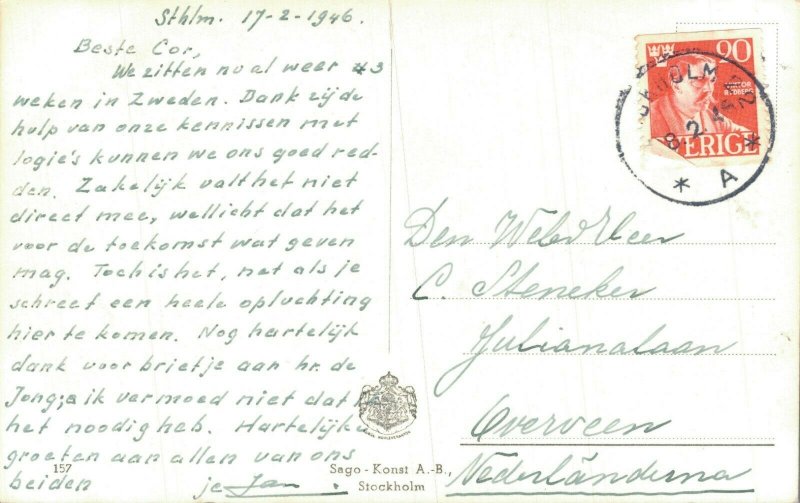 Sthlm. 17-2-1946.
Beste Cor,
We zitten nu al weer 3
weken in Zweden. Dank zij de
hulp van onze kennissen met
logie's kunnen we ons goed red-
den. Zakelijk valt het niet
direct mee, wellicht dat het
voor de toekomst wat geven
mag. Toch is het, net als je
schreef een heele opluchting
hier te komen. Nog hartelijk
dank voor briefje aan hr. de
Jong; ik vermoed niet dat ik
het noodig heb. Hartelijke
groeten aan allen van ons
beiden je Jan.
157
Sago-Konst A.-B.,
Stockholm
20
VIKTOR
RYDBERG
SVERIGE
STOCKHOLM
A
Den Weled. Heer
C. Steneker
Julianalaan
Overveen
Nederländerna